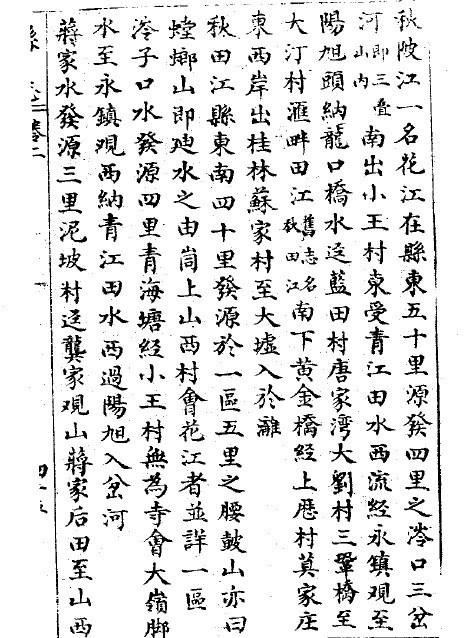 秋陂江一名花江在縣東五十里源發四里之涔口三岔
河即三疊山内南出小王村東受青江田水西流經永鎮观至
陽旭頭納龍口橋水逕藍田村唐家灣大劉村三鞏橋至
大汀村滙畔田江舊志名秋田江南下黄金橋經上厖村莫家庄
東西岸出桂林蘇家村至大墟入於灕
秋田江縣東南四十里發源於一區五里之腰皷山亦曰
螳螂山即 水之由 上山西村會花江者並詳一區
涔子口水發源四里青海塘經小王村無為寺會大嶺脚
水至永鎮观西納青江田水西過陽旭入岔河
蔣家水發源三里泥坡村逕龔家观山蔣家后田至山西